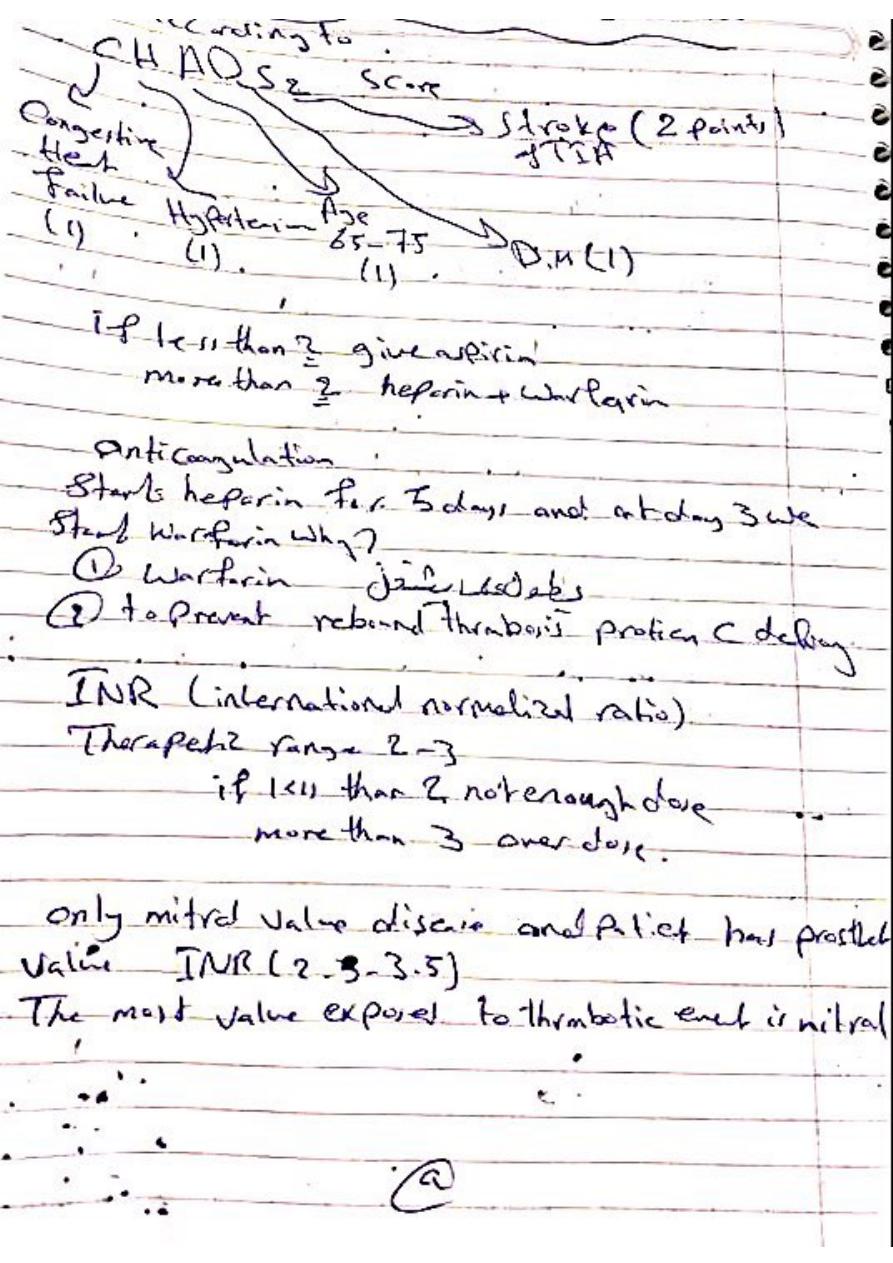 according to
CHADS2 Score
Stroke (2 points)
of TIA
Congestive
Heat
Failure
(1)
Hypertension
(1)
Age
65-75
(1)
D.M (1)
if less than 2 give aspirin
more than 2 heparin + warfarin
Anticoagulation
Starts heparin for 5 days and at day 3 we
Start warfarin why?
① Warfarin
② to Prevent rebound thrombosis protien C
INR (international normalized ratio)
range 2-3
if less than 2 not enough dose
more than 3 over dose.
only mitral valve disease and has
valve INR (2.5-3.5)
The most valve exposed to thrmbotic event is mitral